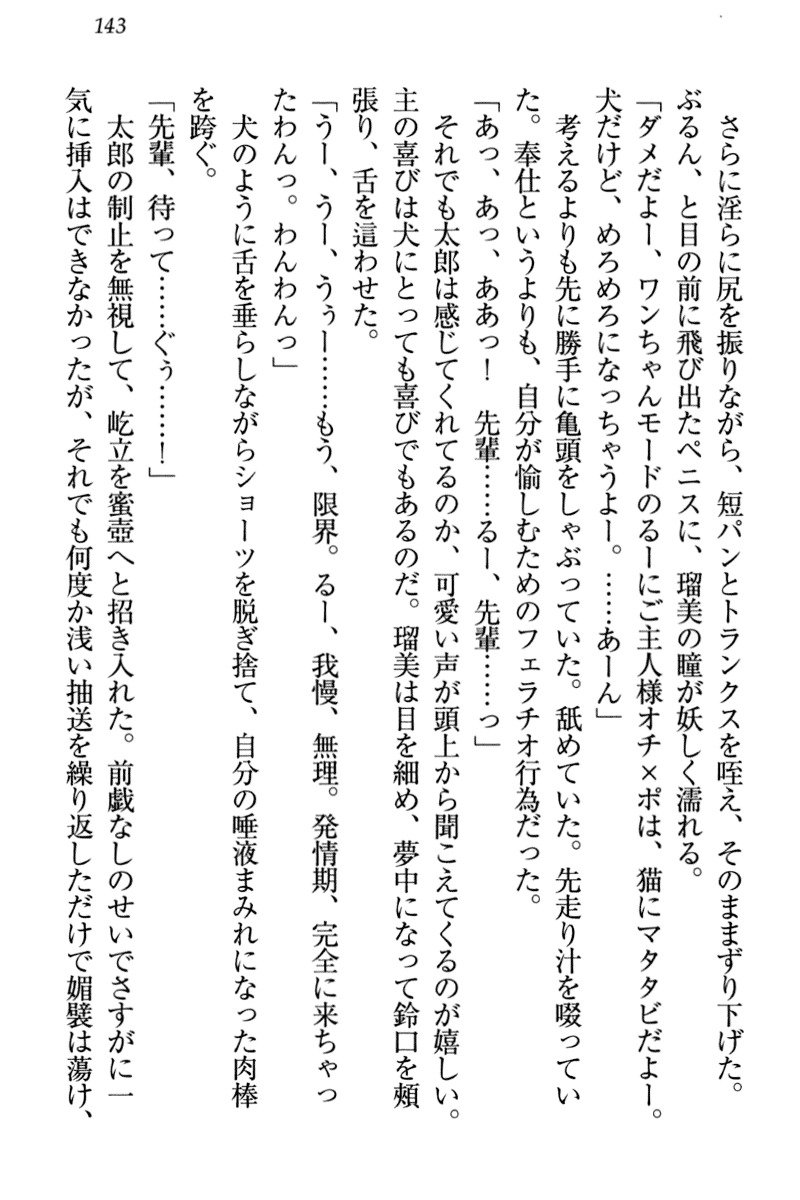 143
さらに淫らに尻を振りながら、短パンとトランクスを咥え、そのままずり下げた。
ぶるん、と目の前に飛び出たペニスに、瑠美の瞳が妖しく濡れる。
「ダメだよー、ワンちゃんモードのるーにご主人様オチ×ポは、猫にマタタビだよー。
犬だけど、めろめろになっちゃうよー。……あーん」
考えるよりも先に勝手に亀頭をしゃぶっていた。舐めていた。先走り汁を啜ってい
た。奉仕というよりも、自分が愉しむためのフェラチオ行為だった。
「あっ、あっ、ああっ！　先輩……るー、先輩……っ」
それでも太郎は感じてくれてるのか、可愛い声が頭上から聞こえてくるのが嬉しい。
主の喜びは犬にとっても喜びでもあるのだ。瑠美は目を細め、夢中になって鈴口を頬
張り、舌を這わせた。
「うー、うー、うぅー……もう、限界。るー、我慢、無理。発情期、完全に来ちゃっ
たわんっ。わんわんっ」
犬のように舌を垂らしながらショーツを脱ぎ捨て、自分の唾液まみれになった肉棒
を跨ぐ。
「先輩、待って……ぐぅ……！」
太郎の制止を無視して、屹立を蜜壺へと招き入れた。前戯なしのせいでさすがに一
気に挿入はできなかったが、それでも何度か浅い抽送を繰り返しただけで媚襞は蕩け、